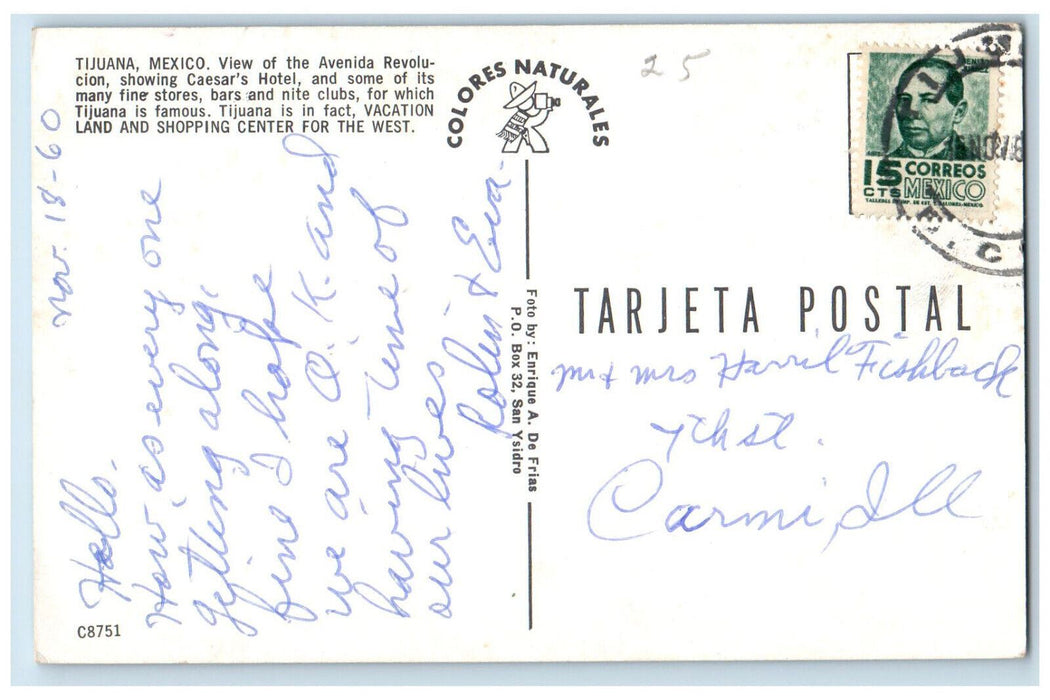 TIJUANA, MEXICO. View of the Avenida Revolu-
cion, showing Caesar's Hotel, and some of its
many fine stores, bars and nite clubs, for which
Tijuana is famous. Tijuana is in fact, VACATION
LAND AND SHOPPING CENTER FOR THE WEST.
COLORES NATURALES
25
15 CORREOS
CTS MEXICO
Nov. 18-60
Hello.
How as every one
getting along,
fine I hope
we are O.K. and
having time of
our lives
Rolin & Eva.
Foto by: Enrique A. De Frias
P.O. Box 32, San Ysidro
TARJETA POSTAL
Mr & Mrs Harril Fishback
7th st.
Carmi, Ill
C8751